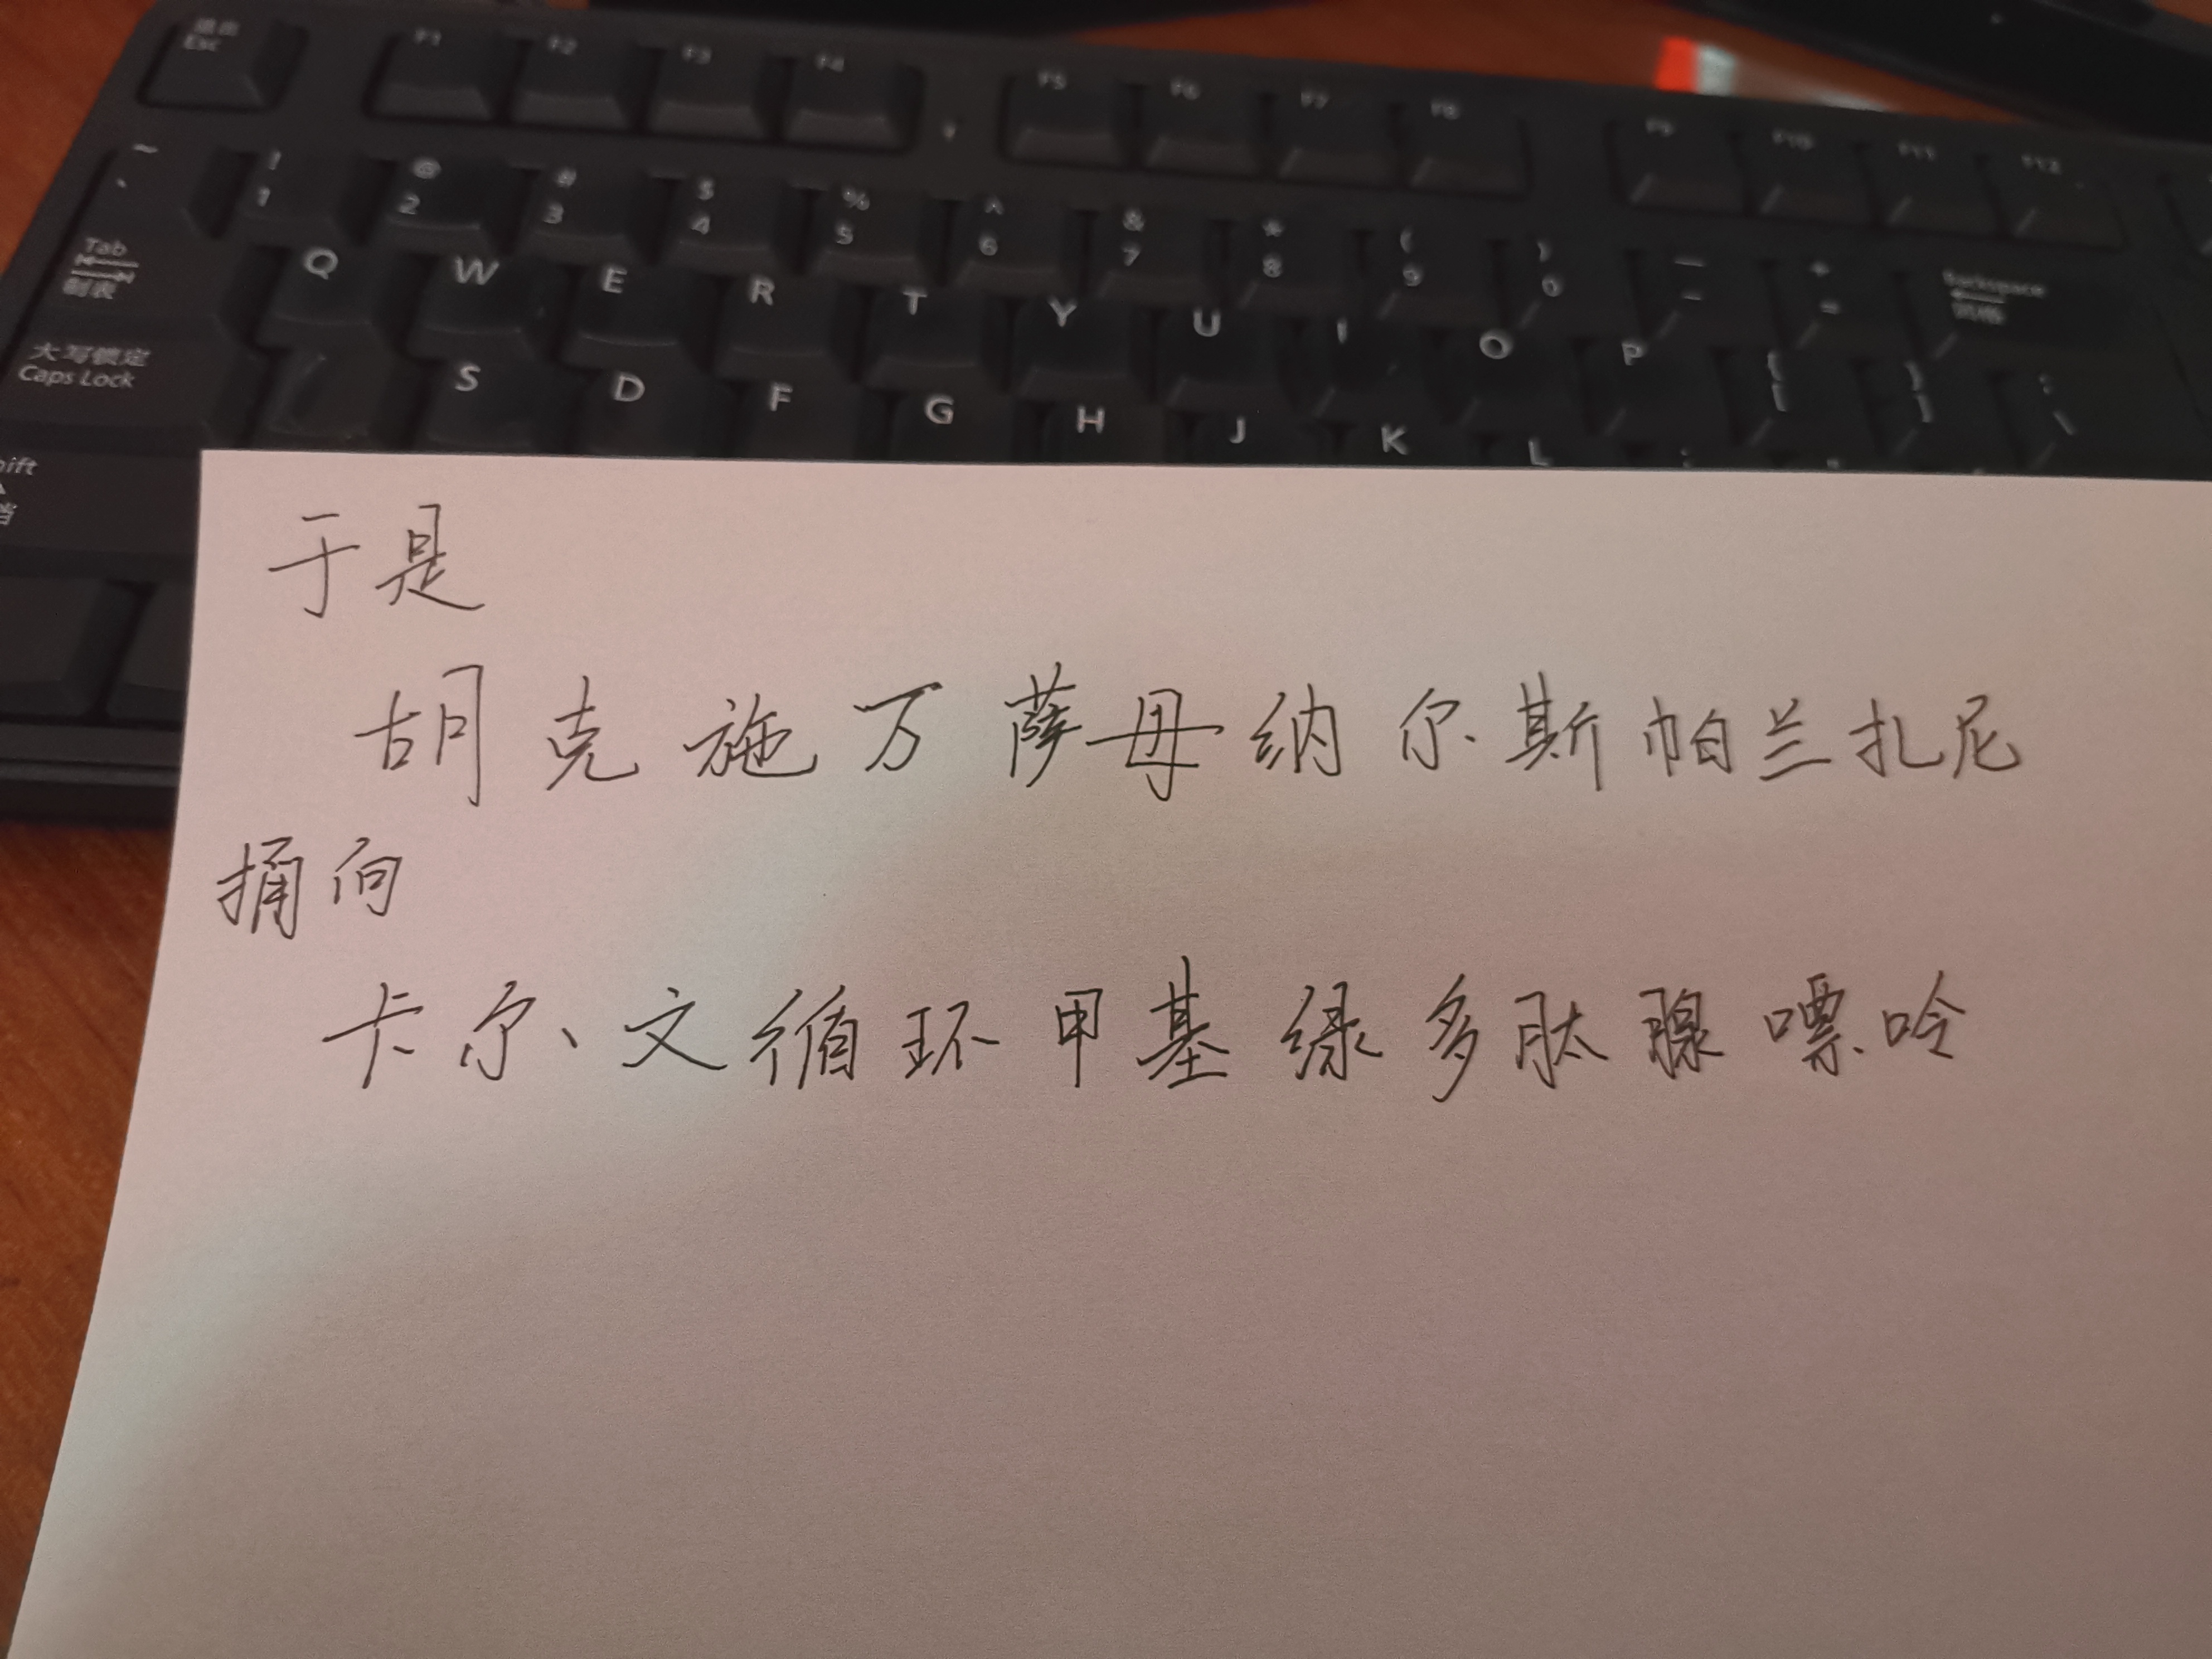 退出
Esc F1 F2 F3 F4 F5 F6 F7 F8 F9 F10 F11 F12
~ ! @ # $ % ^ & * ( ) — +
` 1 2 3 4 5 6 7 8 9 0 - = Backspace 退格
Tab 制表 Q W E R T Y U I O P { [ } ]
大写锁定
Caps Lock S D F G H J K L ;
hift
档
于是
胡克施万萨毋纳尔斯帕兰扎尼
捅向
卡尔文循环甲基绿多肽腺嘌呤